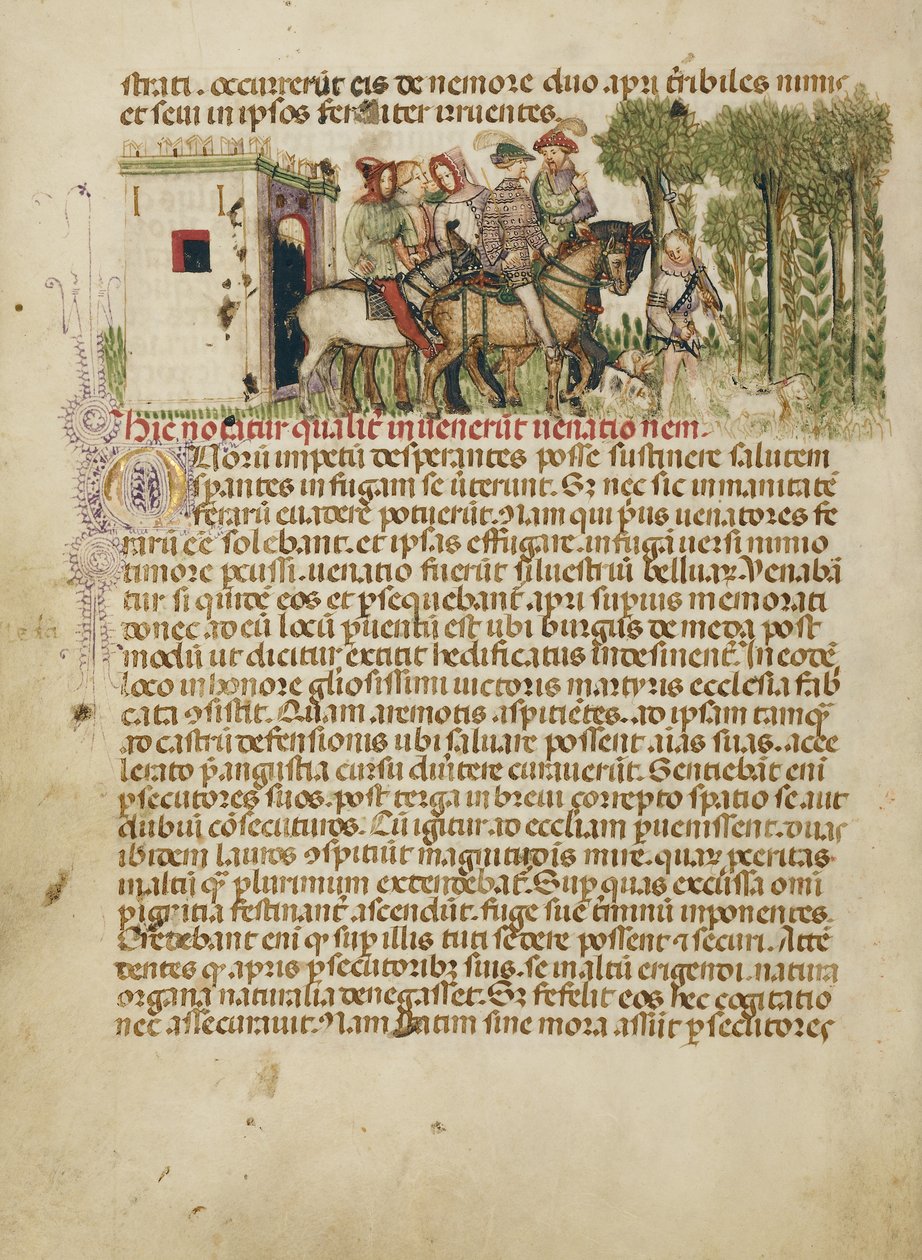 strati. occurrerūt eis de nemore duo apri t̄ribiles nimis
et sevi in ipsos feraliter irruentes.
Hic notatur qualit̄ invenerūt venationem.
Quorū impetū desperantes posse sustinere salutem
sperantes in fugam se v̄terunt. Sꝫ nec sic inmanitatē
ferarū evadere potuerūt. Nam qui p̄us venatores fe
rarū eē solebant. et ipsas effugare. in fugā versi nimio
timore ꝑcussi. venatio fuerūt silvestriū belluaꝝ. Venabā
tur si quidē eos et ꝑsequebant̄ apri supius memorati
donec ad eū locū ꝑventū est ubi burgus de meda post
modū ut dicitur extitit hedificatus indesinent̄. In eodē
loco in honore gliosissimi victoris martyris ecclesia fab
cata ꝯsistit. Quam a remotis aspitiētes. ad ipsam tamqꝫ
ad castrū defensionis ubi salvare possent aīas suas. acce
lerato p̄ angustia cursu div̄tere curaverūt. Sentiebāt eni
ꝑsecutores suos. post terga in brevi correpto spatio se aut
dubiū cōsecuturos. Cū igitur ad eccliam ꝑvenissent. duas
ibidem lauros ꝯspitiūt magnitudīs mire. quaꝝ ꝓceritas
in altū qꝫ plurimum extendebat̄. Suꝑ quas excussa omi
pigritia festinant̄ ascendūt. fuge sue t̄minū inponentes.
Credebant eni ꝙ suꝑ illis tuti sedere possent ⁊ securi. Attē
dentes ꝙ apris ꝑsecutoribꝫ suis. se in altū erigendi. natura
organa naturalia denegasset. Sꝫ fefelit eos hec cogitatio
nec assecuravit. Nam statim sine mora assūt ꝑsecutores